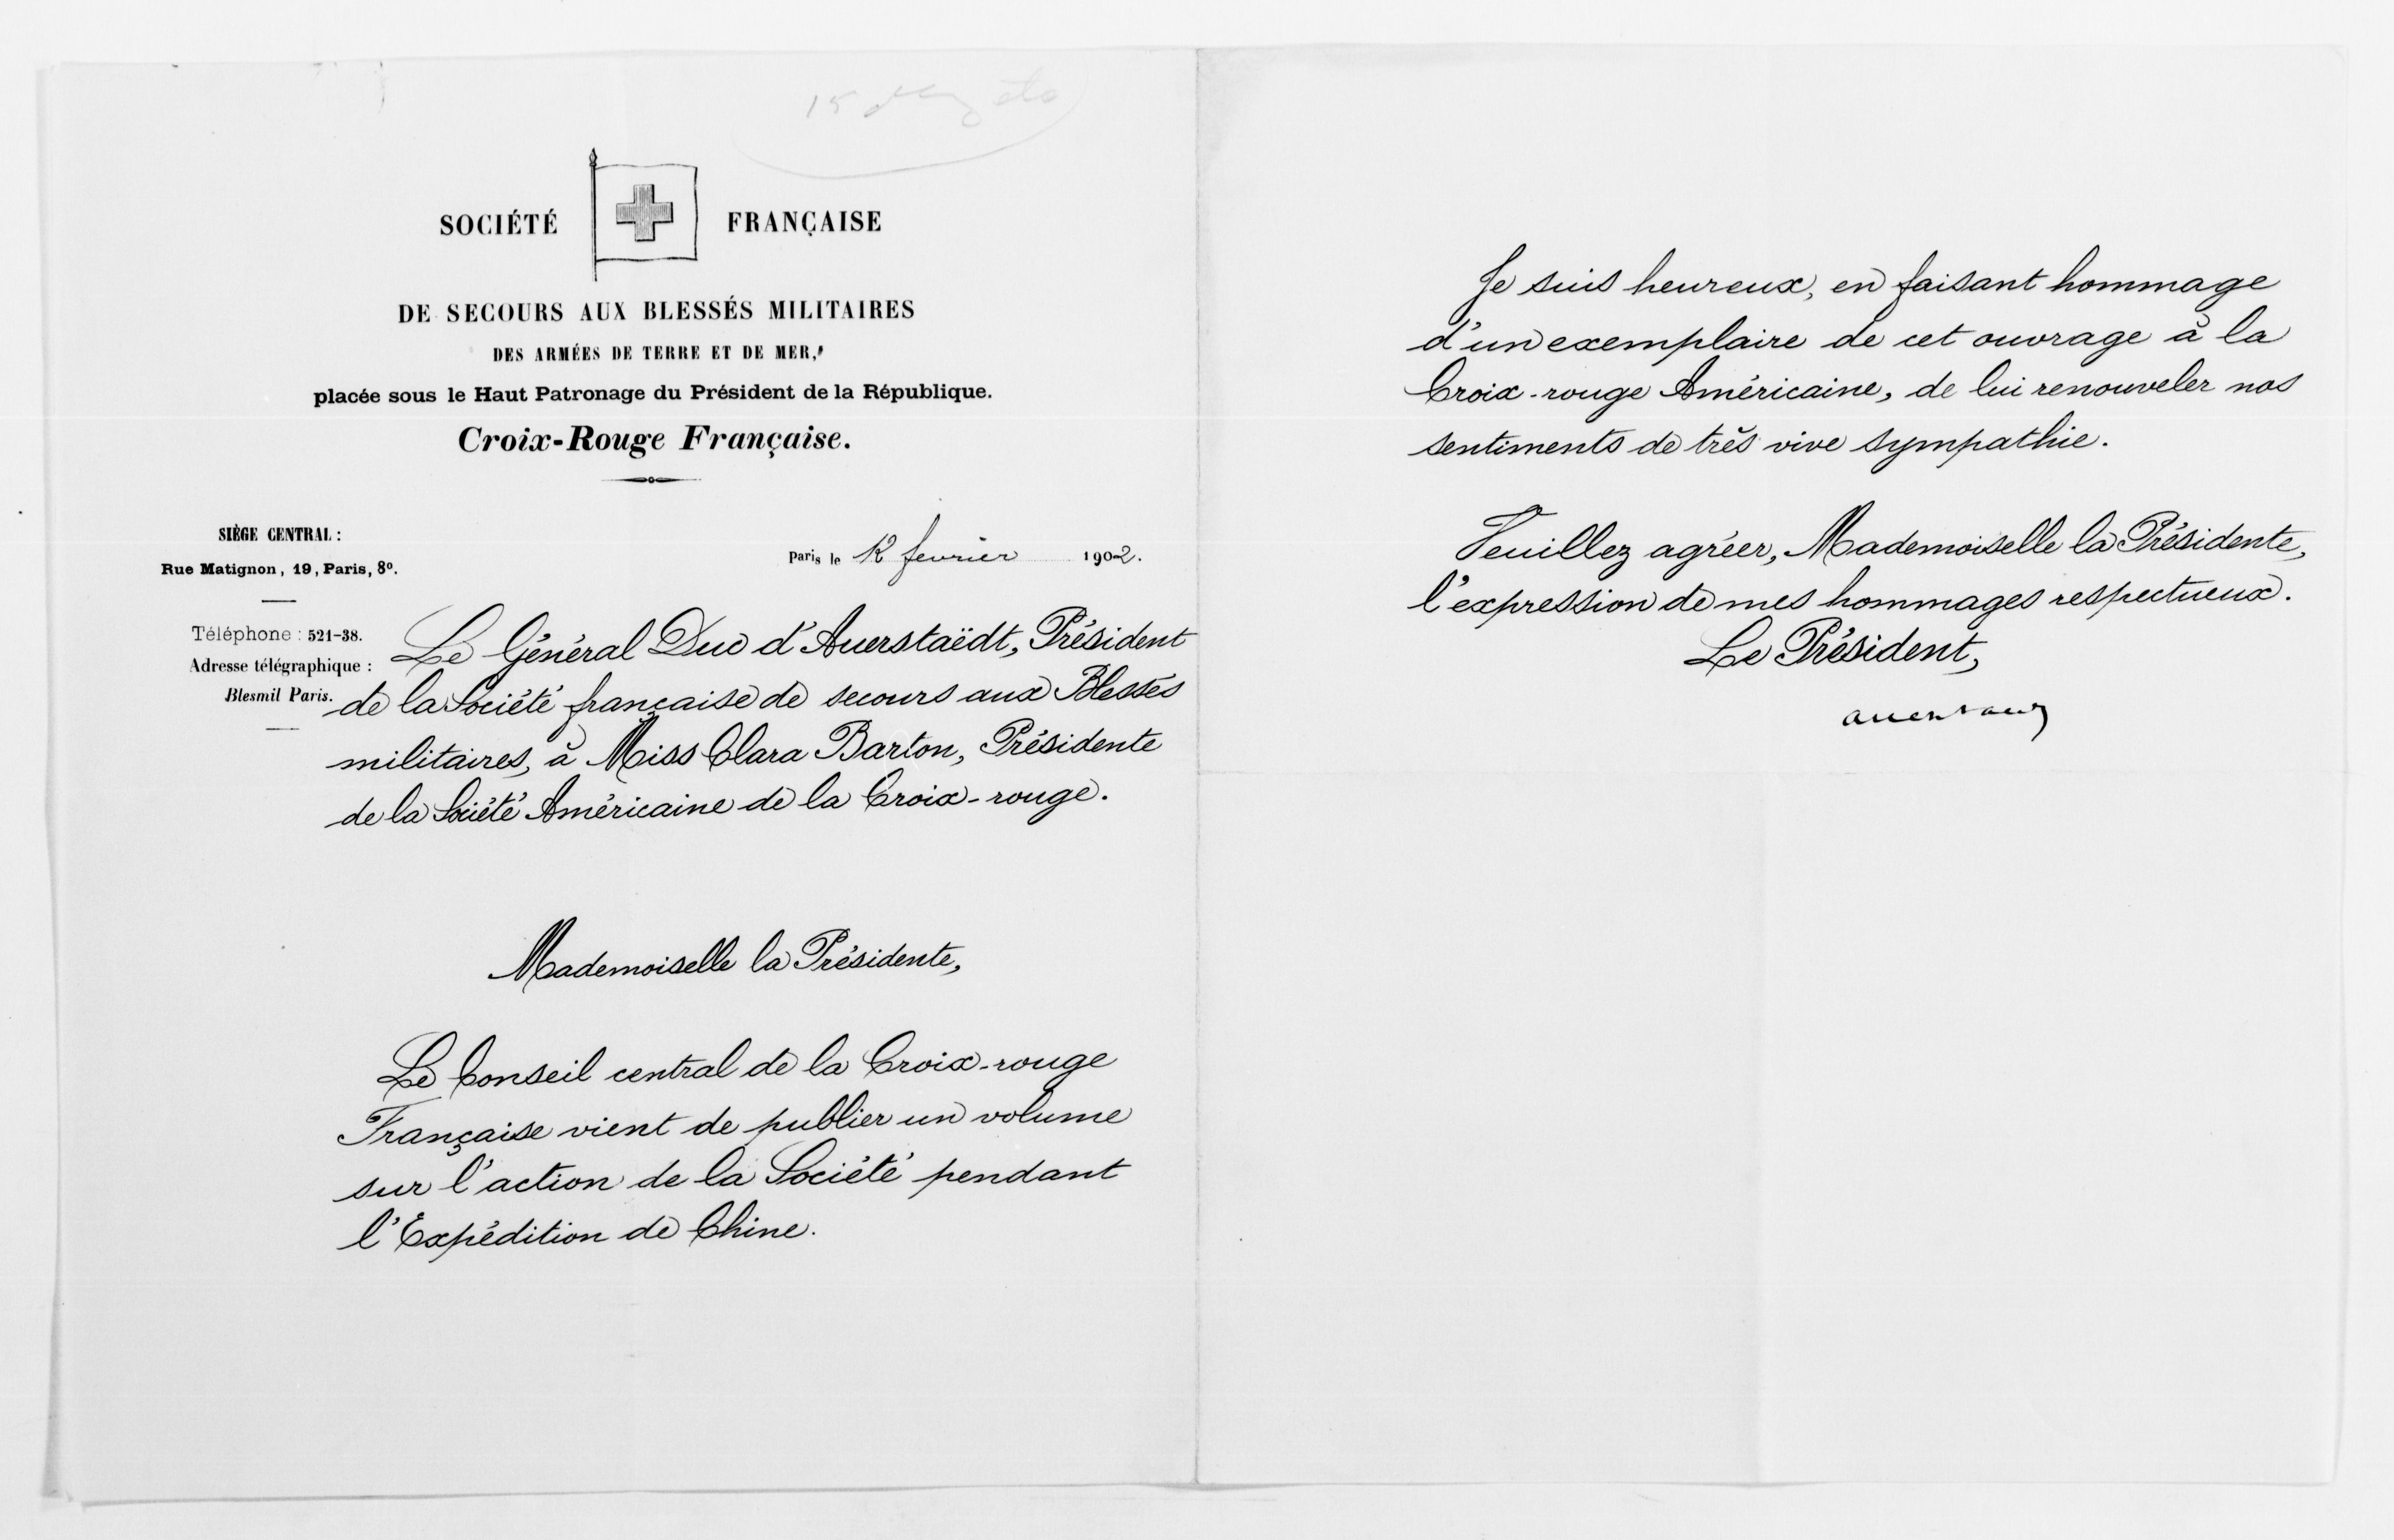 SOCIÉTÉ FRANÇAISE
DE SECOURS AUX BLESSÉS MILITAIRES
DES ARMÉES DE TERRE ET DE MER,
placée sous le Haut Patronage du Président de la République.
Croix-Rouge Française.
SIÈGE CENTRAL :
Rue Matignon, 19, Paris, 8º.
Téléphone : 521-38.
Adresse télégraphique :
Blesmil Paris.
Paris le 12 fevrier 1902.
Le Général Duc d'Auerstaëdt, Président
de la Société française de secours aux Blessés
militaires, à Miss Clara Barton, Présidente
de la Société Américaine de la Croix-rouge.
Mademoiselle la Présidente,
Le Conseil central de la Croix-rouge
Française vient de publier un volume
sur l'action de la Société pendant
l'Expédition de Chine.
Je suis heureux, en faisant hommage
d'un exemplaire de cet ouvrage à la
Croix-rouge Américaine, de lui renouveler nos
sentiments de très vive sympathie.
Veuillez agréer, Mademoiselle la Présidente,
l'expression de mes hommages respectueux.
Le Président,